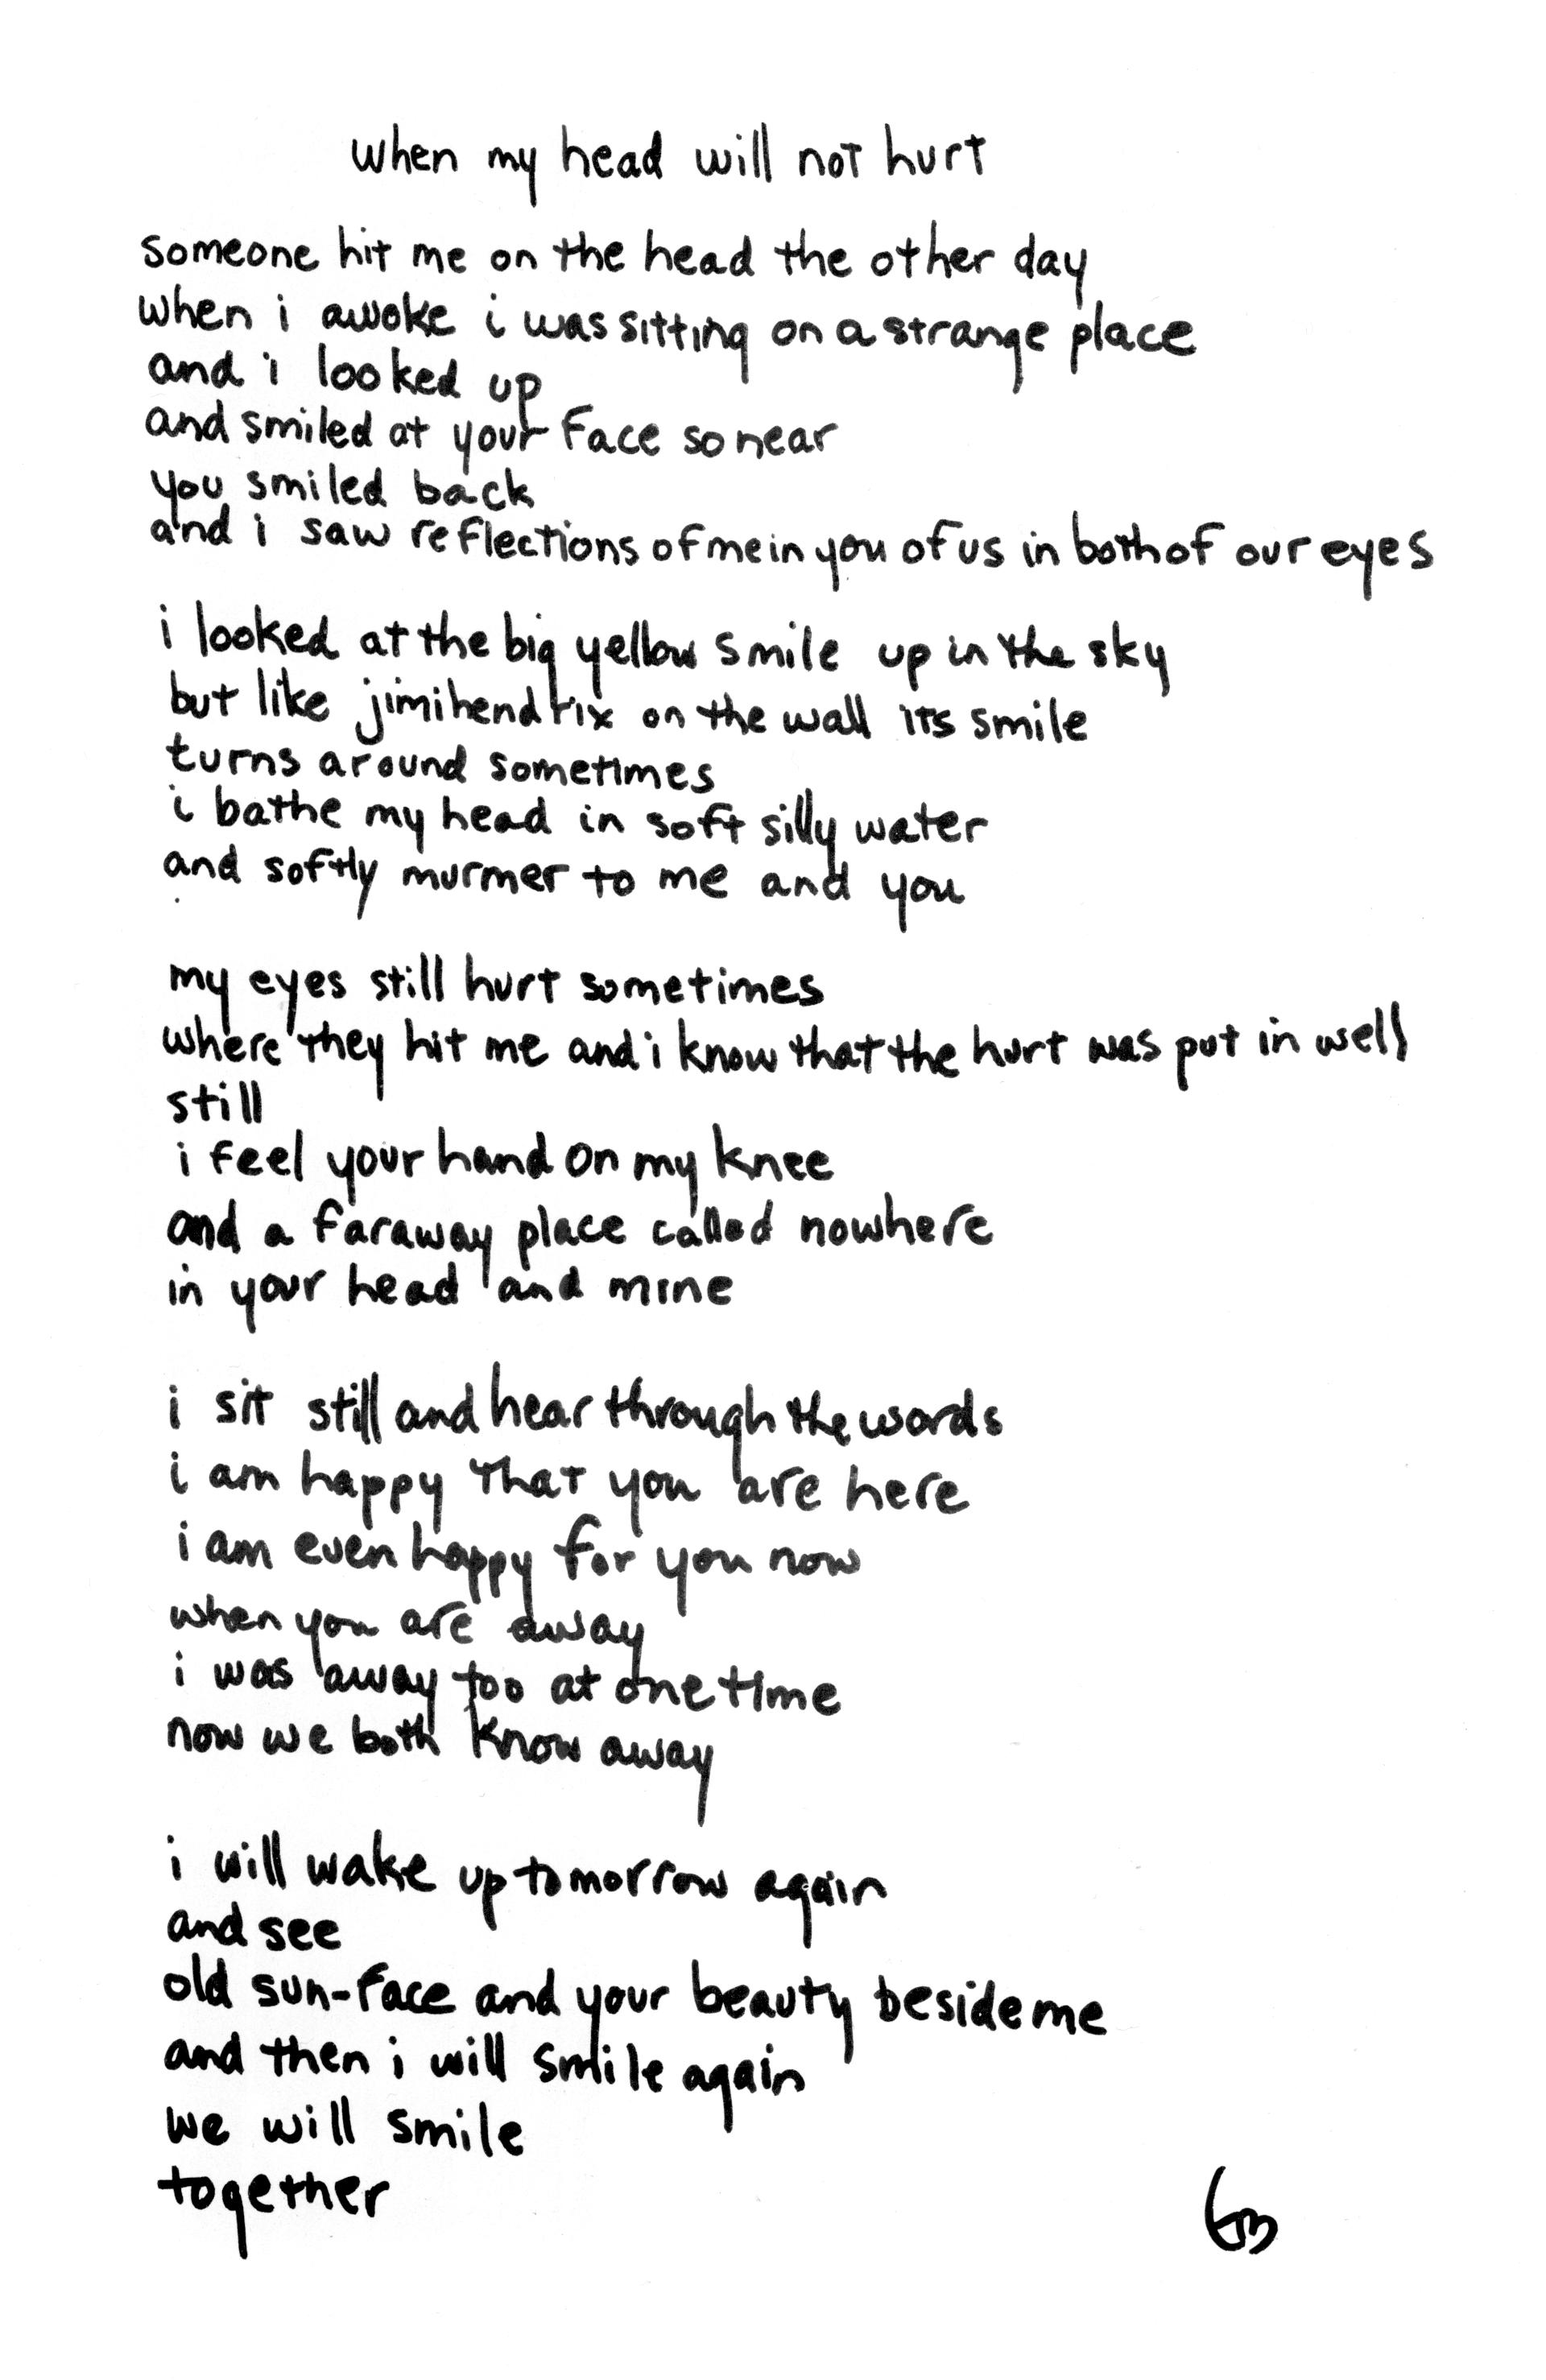 when my head will not hurt
someone hit me on the head the other day
when i awoke i was sitting on a strange place
and i looked up
and smiled at your face so near
you smiled back
and i saw reflections of me in you of us in both of our eyes
i looked at the big yellow smile up in the sky
but like jimi hendrix on the wall its smile
turns around sometimes
i bathe my head in soft silly water
and softly murmer to me and you
my eyes still hurt sometimes
where they hit me and i know that the hurt was put in well
still
i feel your hand on my knee
and a faraway place called nowhere
in your head and mine
i sit still and hear through the words
i am happy that you are here
i am even happy for you now
when you are away
i was away too at one time
now we both know away
i will wake up tomorrow again
and see
old sun-face and your beauty beside me
and then i will smile again
we will smile
together